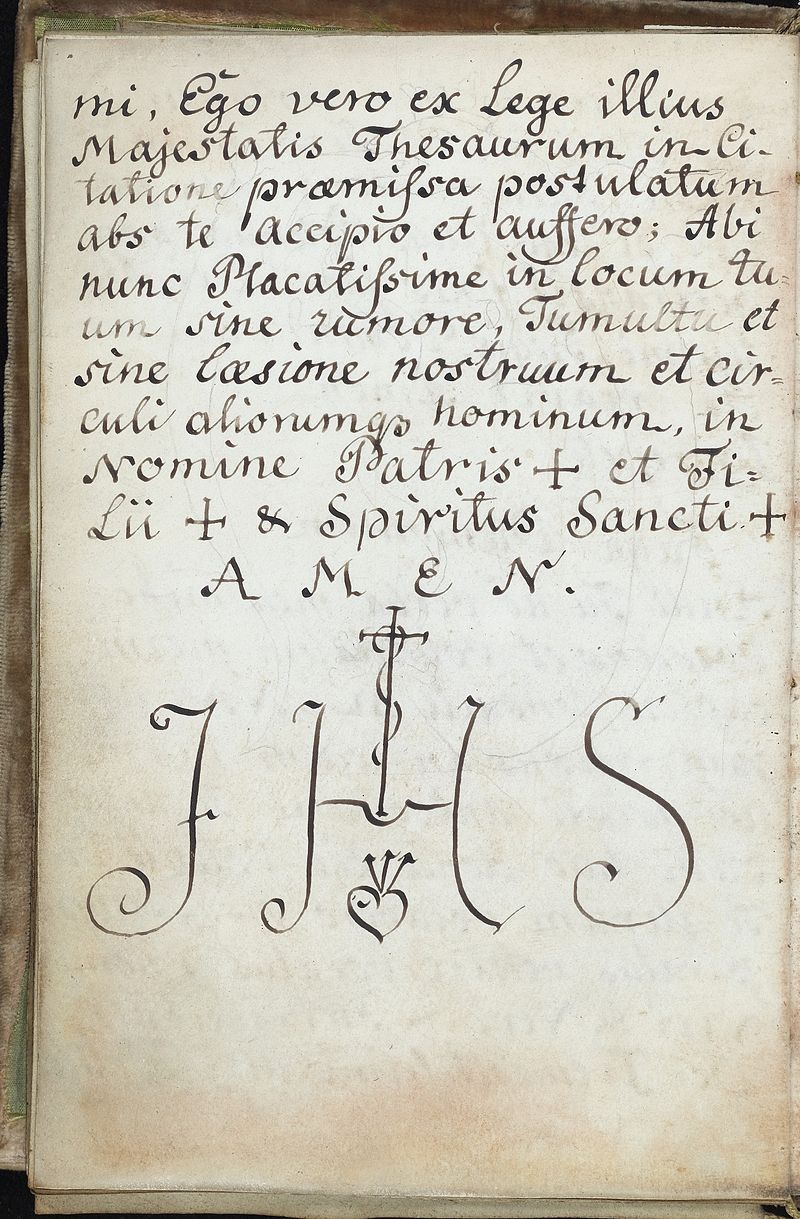 mi, Ego vero ex Lege illius
Majestatis Thesaurum in Ci-
tatione præmiſsa postulatum
abs te accipio et auffero; Abi
nunc Placatiſsime in locum tu=
um sine rumore, Tumultu et
sine læsione nostruum et cir=
culi aliorumqꝫ hominum, in
Nomine Patris + et Fi=
Lii + & Spiritus Sancti +
A M E N.
J H S